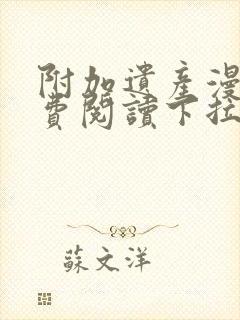 附加遺產漫
費閱讀下拉
蘇文洋